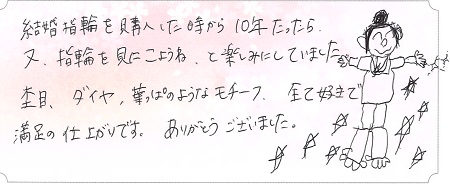 結婚指輪を購入した時から10年たったら
又、指輪を見にこようね、と楽しみにしていました。
杢目、ダイヤ、葉っぱのようなモチーフ、全て好きで
満足の仕上がりです。ありがとうございました。